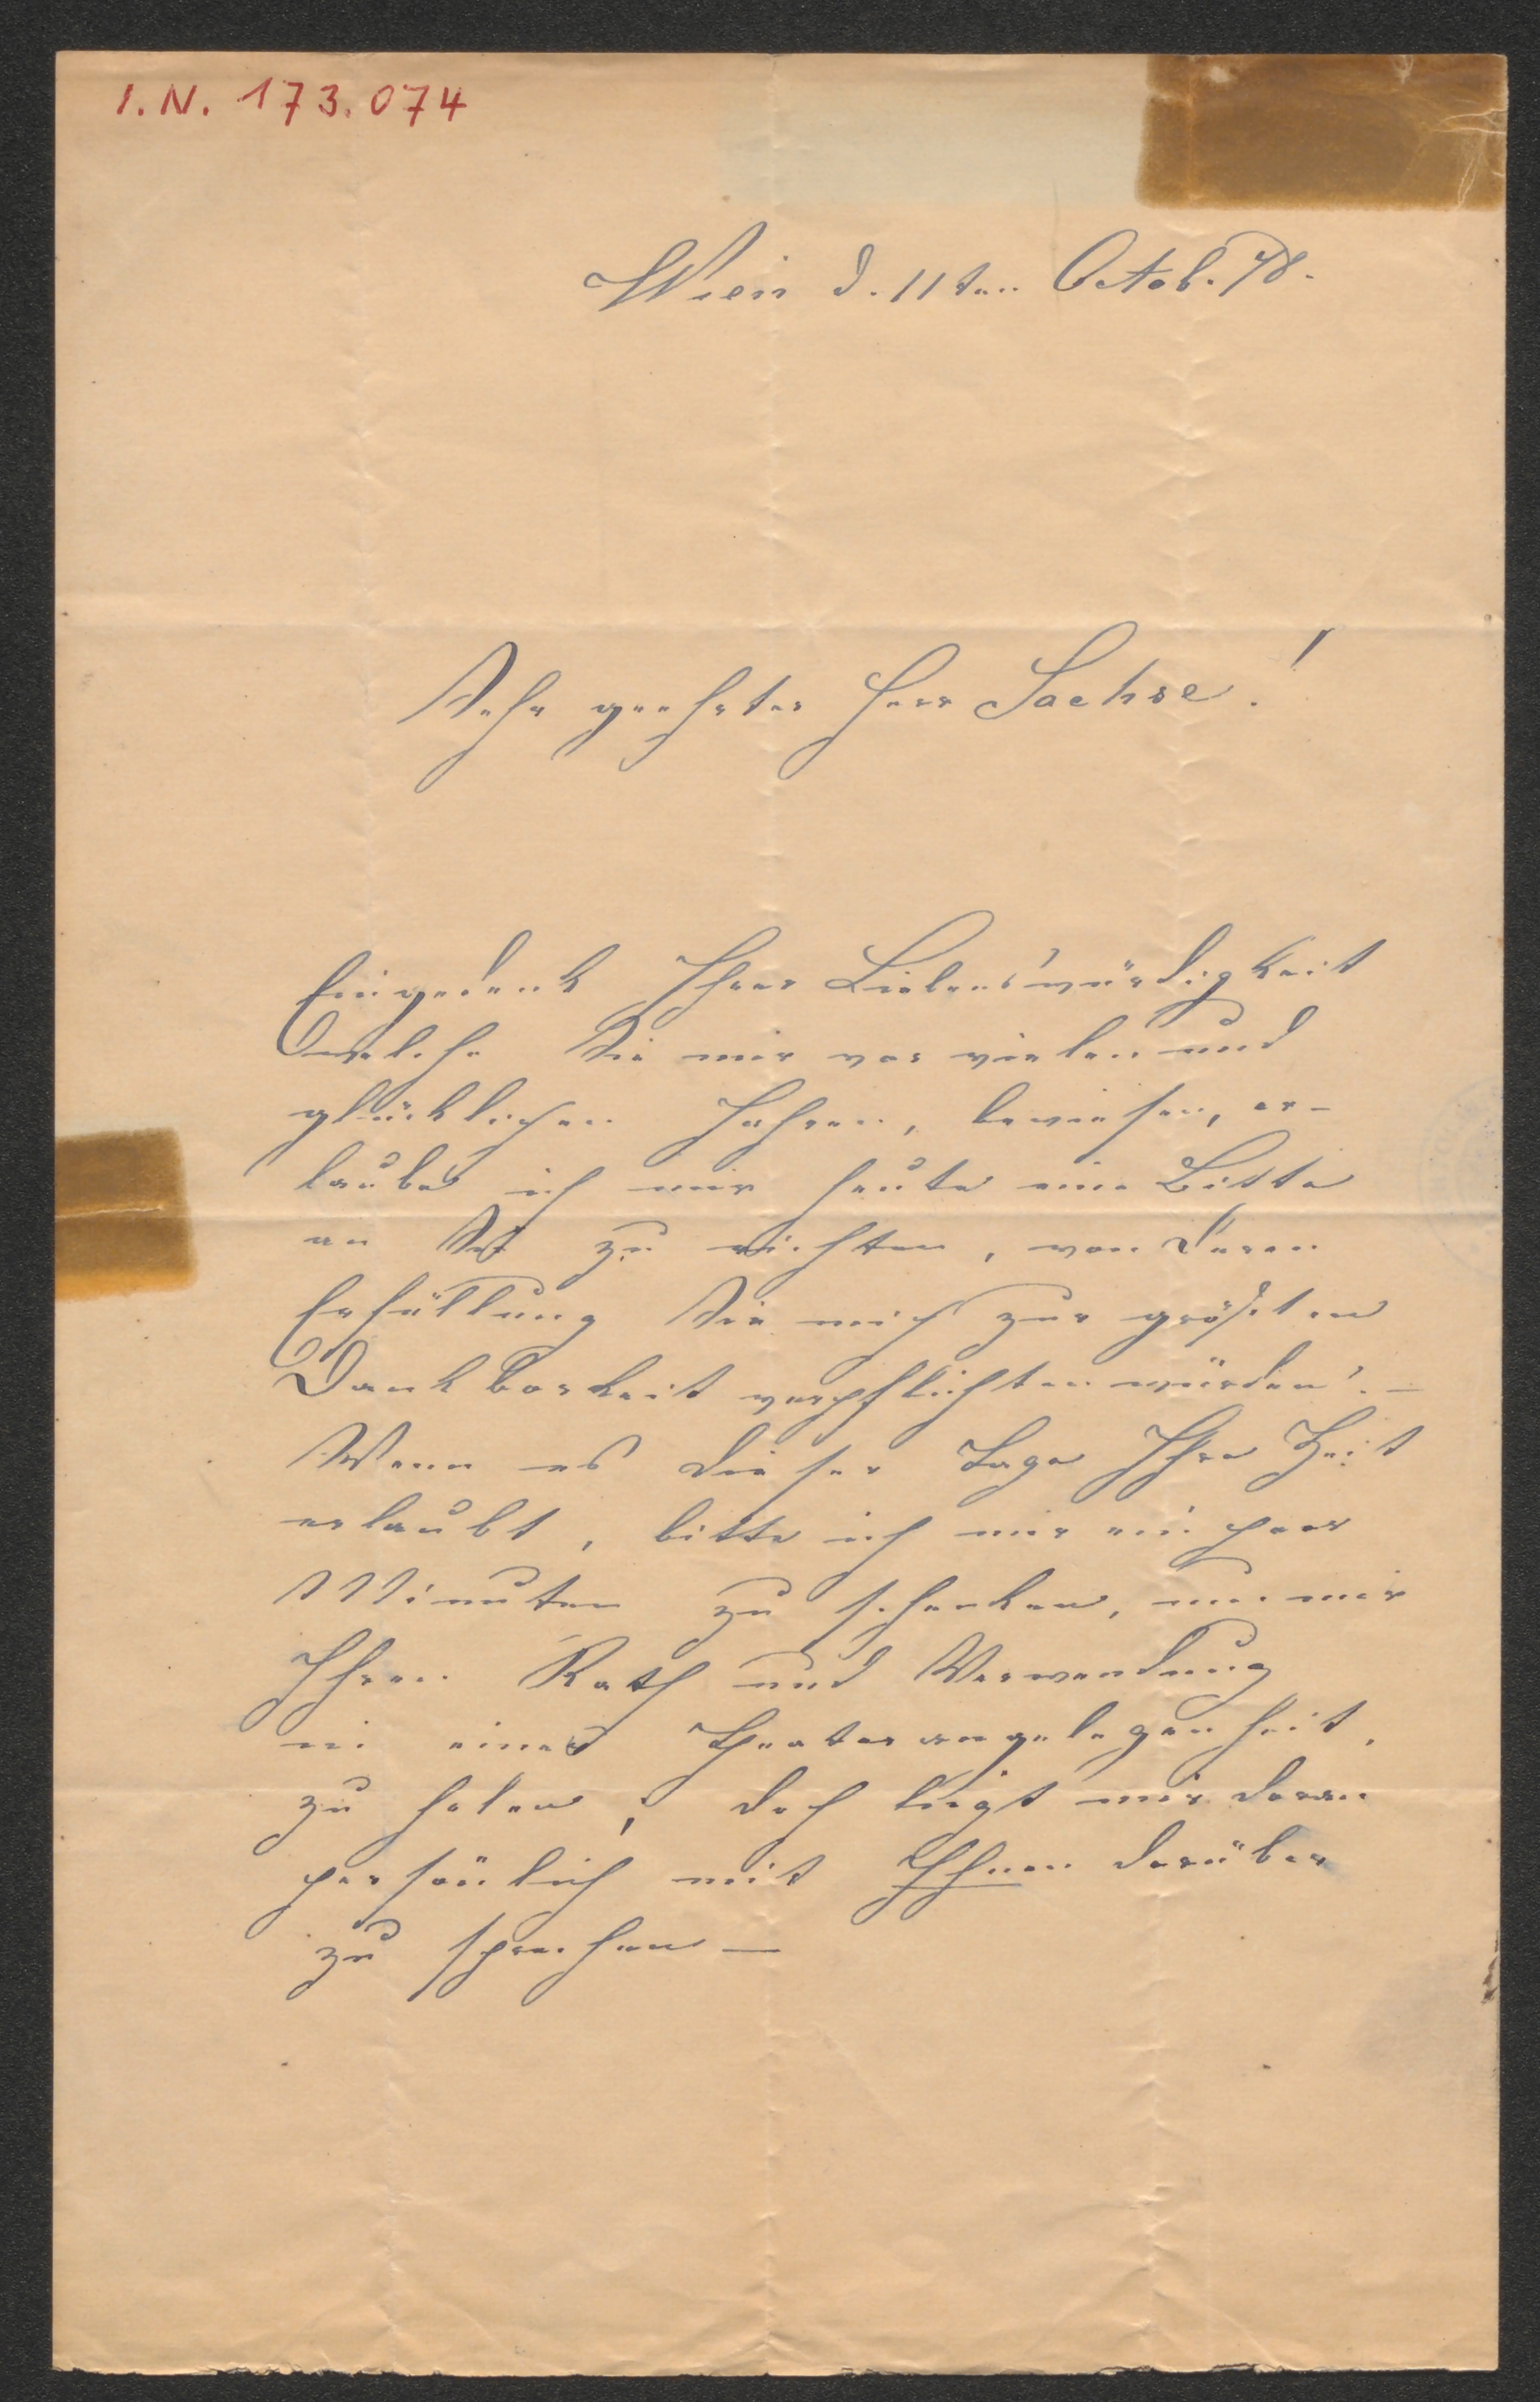 I.N. 173.074
Wien d. 11ten Octob. 78.
Sehr geehrter Herr Sachse!
Eingedenk Ihrer Liebenswürdigkeit
welche Sie mir vor vielen und
glücklichen Jahren, bewiesen, er-
laube ich mir heute eine Bitte
an Sie zu richten, von deren
Erfüllung Sie mich zur größten
Dankbarkeit verpflichten würden!. –
Wenn es dieser Tage Ihre Zeit
erlaubt, bitte ich mir ein paar
Minuten zu schenken, um mir
Ihren Rath und Verwendung
in einer Theaterangelegenheit,
zu holen; doch liegt mir daran
persönlich mit Ihnen darüber
zu sprechen –